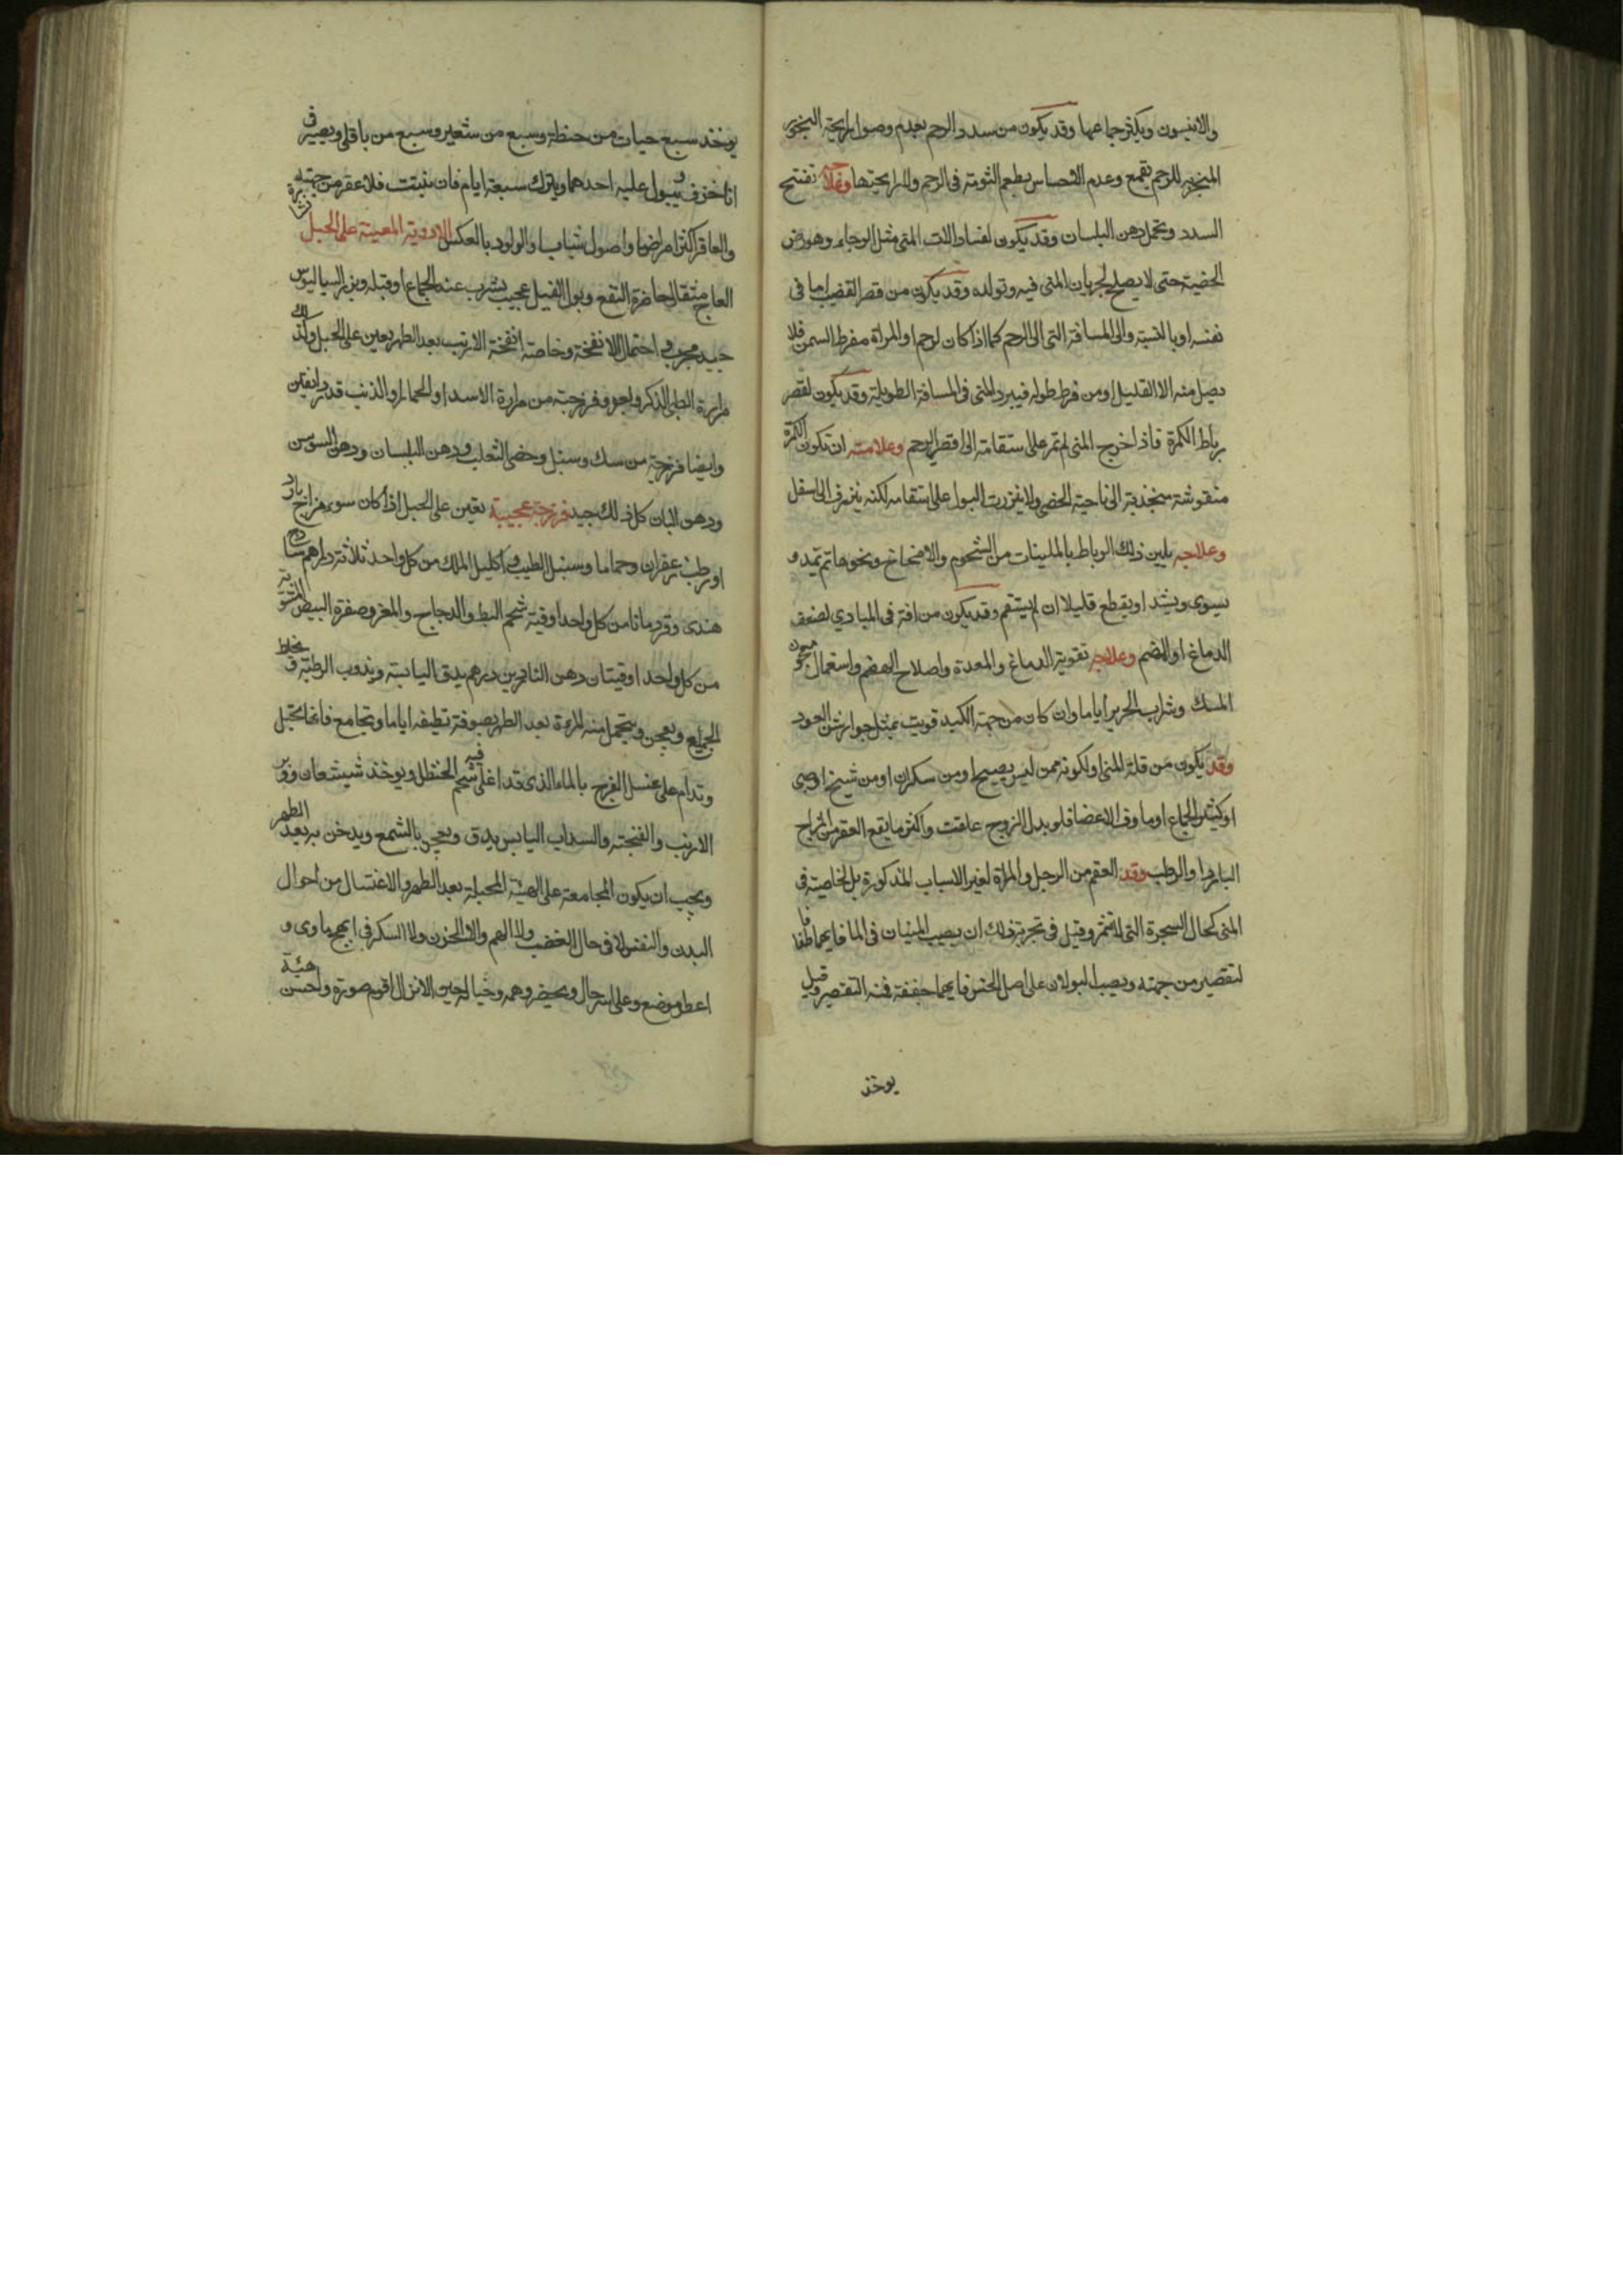 والانيسون ويكثر جماعها وقد يكون من سدد الرحم بعدم وصول رايحة البخور
المبخر به للرحم بقمع وعدم الاحساس بطعم الثومة في الرحم ولا رايحتها وعلاجه تفتيح
السدد وتحمل دهن البلسان وقد يكون لفساد الات المني مثل الوجاء وهو رض
الخصية حتى لا يصلح لجريان المني فيه وتولده وقد يكون من قصر القضيب اما في
نفسه او بالنسبة والى المسافة التي الى الرحم كما اذا كان لرحم او المراة مفرط السمن فلا
يصل منه الا القليل او من فرط طوله فيبرد المني في المسافة الطويلة وقد يكون لقصر
رباط الكمرة فاذا خرج المني لم يمر على استقامة الى قعر الرحم وعلامته ان تكون الكمرة
منقوشة منجذبة الى ناحية الخصى ولا يزرق البول على استقامة لكنه ينزرف الى اسفل
وعلاجه تليين ذلك الرباط بالملينات من الشحوم والامخاخ ونحوها ثم يمد و
يسوى ويشد او يقطع قليلا ان لم يستقم وقد يكون من افة في المبادي لضعف
الدماغ او الهضم وعلاجه تقوية الدماغ والمعدة واصلاح الهضم واستعمال معجون
المسك وشراب الحرير اياما وان كان من جهة الكبد قويت بمثل جوارش العود
وقد يكون من قلة المني او لكونه ممن ليس بصحيح او من سكران او من شيخ او صبي
او كثير الجماع او ماوف الاعضا فلو بدل الزوج علقت واكثر ما يقع العقر من المزاج
البارد او الرطب وقد العقم من الرجل والمراة لغير الاسباب المذكورة بل لخاصية في
المني كحال الشجرة التي لا تثمر وقيل في تجربة ذلك ان يصب المنيان في الما فايهما طفا فا
لتقصير من جهته ويصب البولان على اصل الخس فايهما جففه فمنه التقصير وقيل
يوخذ
يوخذ سبع حبات من حنطة وسبع من شعير وسبع من باقلى ويصير في
انا خزف ويبول عليه احدهما ويترك سبعة ايام فان نبتت فلا عقر من جهته
والعاقر اكثر امراضها واصول شبابها والولود بالعكس الادوية المعينة على الحبل نشارة
العاج مثقال حاضرة النفع وبول الفيل عجيب يشرب عند الجماع او قبله وبزر السياليوس
جيد مجرب و احتمال الانفخة وخاصة انفخة الارنب بعد الطهر يعين على الحبل وكذلك
مرارة الظبي الذكر وفرزجة من مرارة الاسد او الحمار او الذئب قدر دانقين
وايضا فرزجة من سك وسنبل وخصى الثعلب ودهن البلسان ودهن السوسن
ودهن البان كل ذلك جيد فرزجة عجيبة تعين على الحبل اذا كان سوء مزاج بارد
او رطب زعفران وحماما وسنبل الطيب واكليل الملك من كل واحد ثلاثة دراهم سادج
هندي وقردمانا من كل واحد اوقية شحم البط والدجاج والمغر وصفرة البيض المشوية
من كل واحد اوقيتان دهن الناردين درهم يدق اليابسة ويذوب الرطبة فيخلط
الجميع ويعجن ويتحمل منه المرءة بعد الطهر بصوفة نظيفة اياما وتجامع فانها تحبل
وتدام على غسل الفرج بالماء الذي قد اغلى فيه شحم الحنظل ويوخذ شيشعان ووبر
الارنب والفنجنه والسداب اليابس يدق ويعجن بالشمع ويدخن به بعد الطهر
ويجب ان يكون المجامعة على الهيئة المحبلة بعد الطهر والاغتسال من احوال
البدن والنفس لا في حال الغضب ولا الهم ولا الحزن ولا السكر في ابهج ماوى و
اعطر موضع وعلى اسر حال ويحضر وهمه وخياله حين الانزال اقوم صورة واحسن هيئة